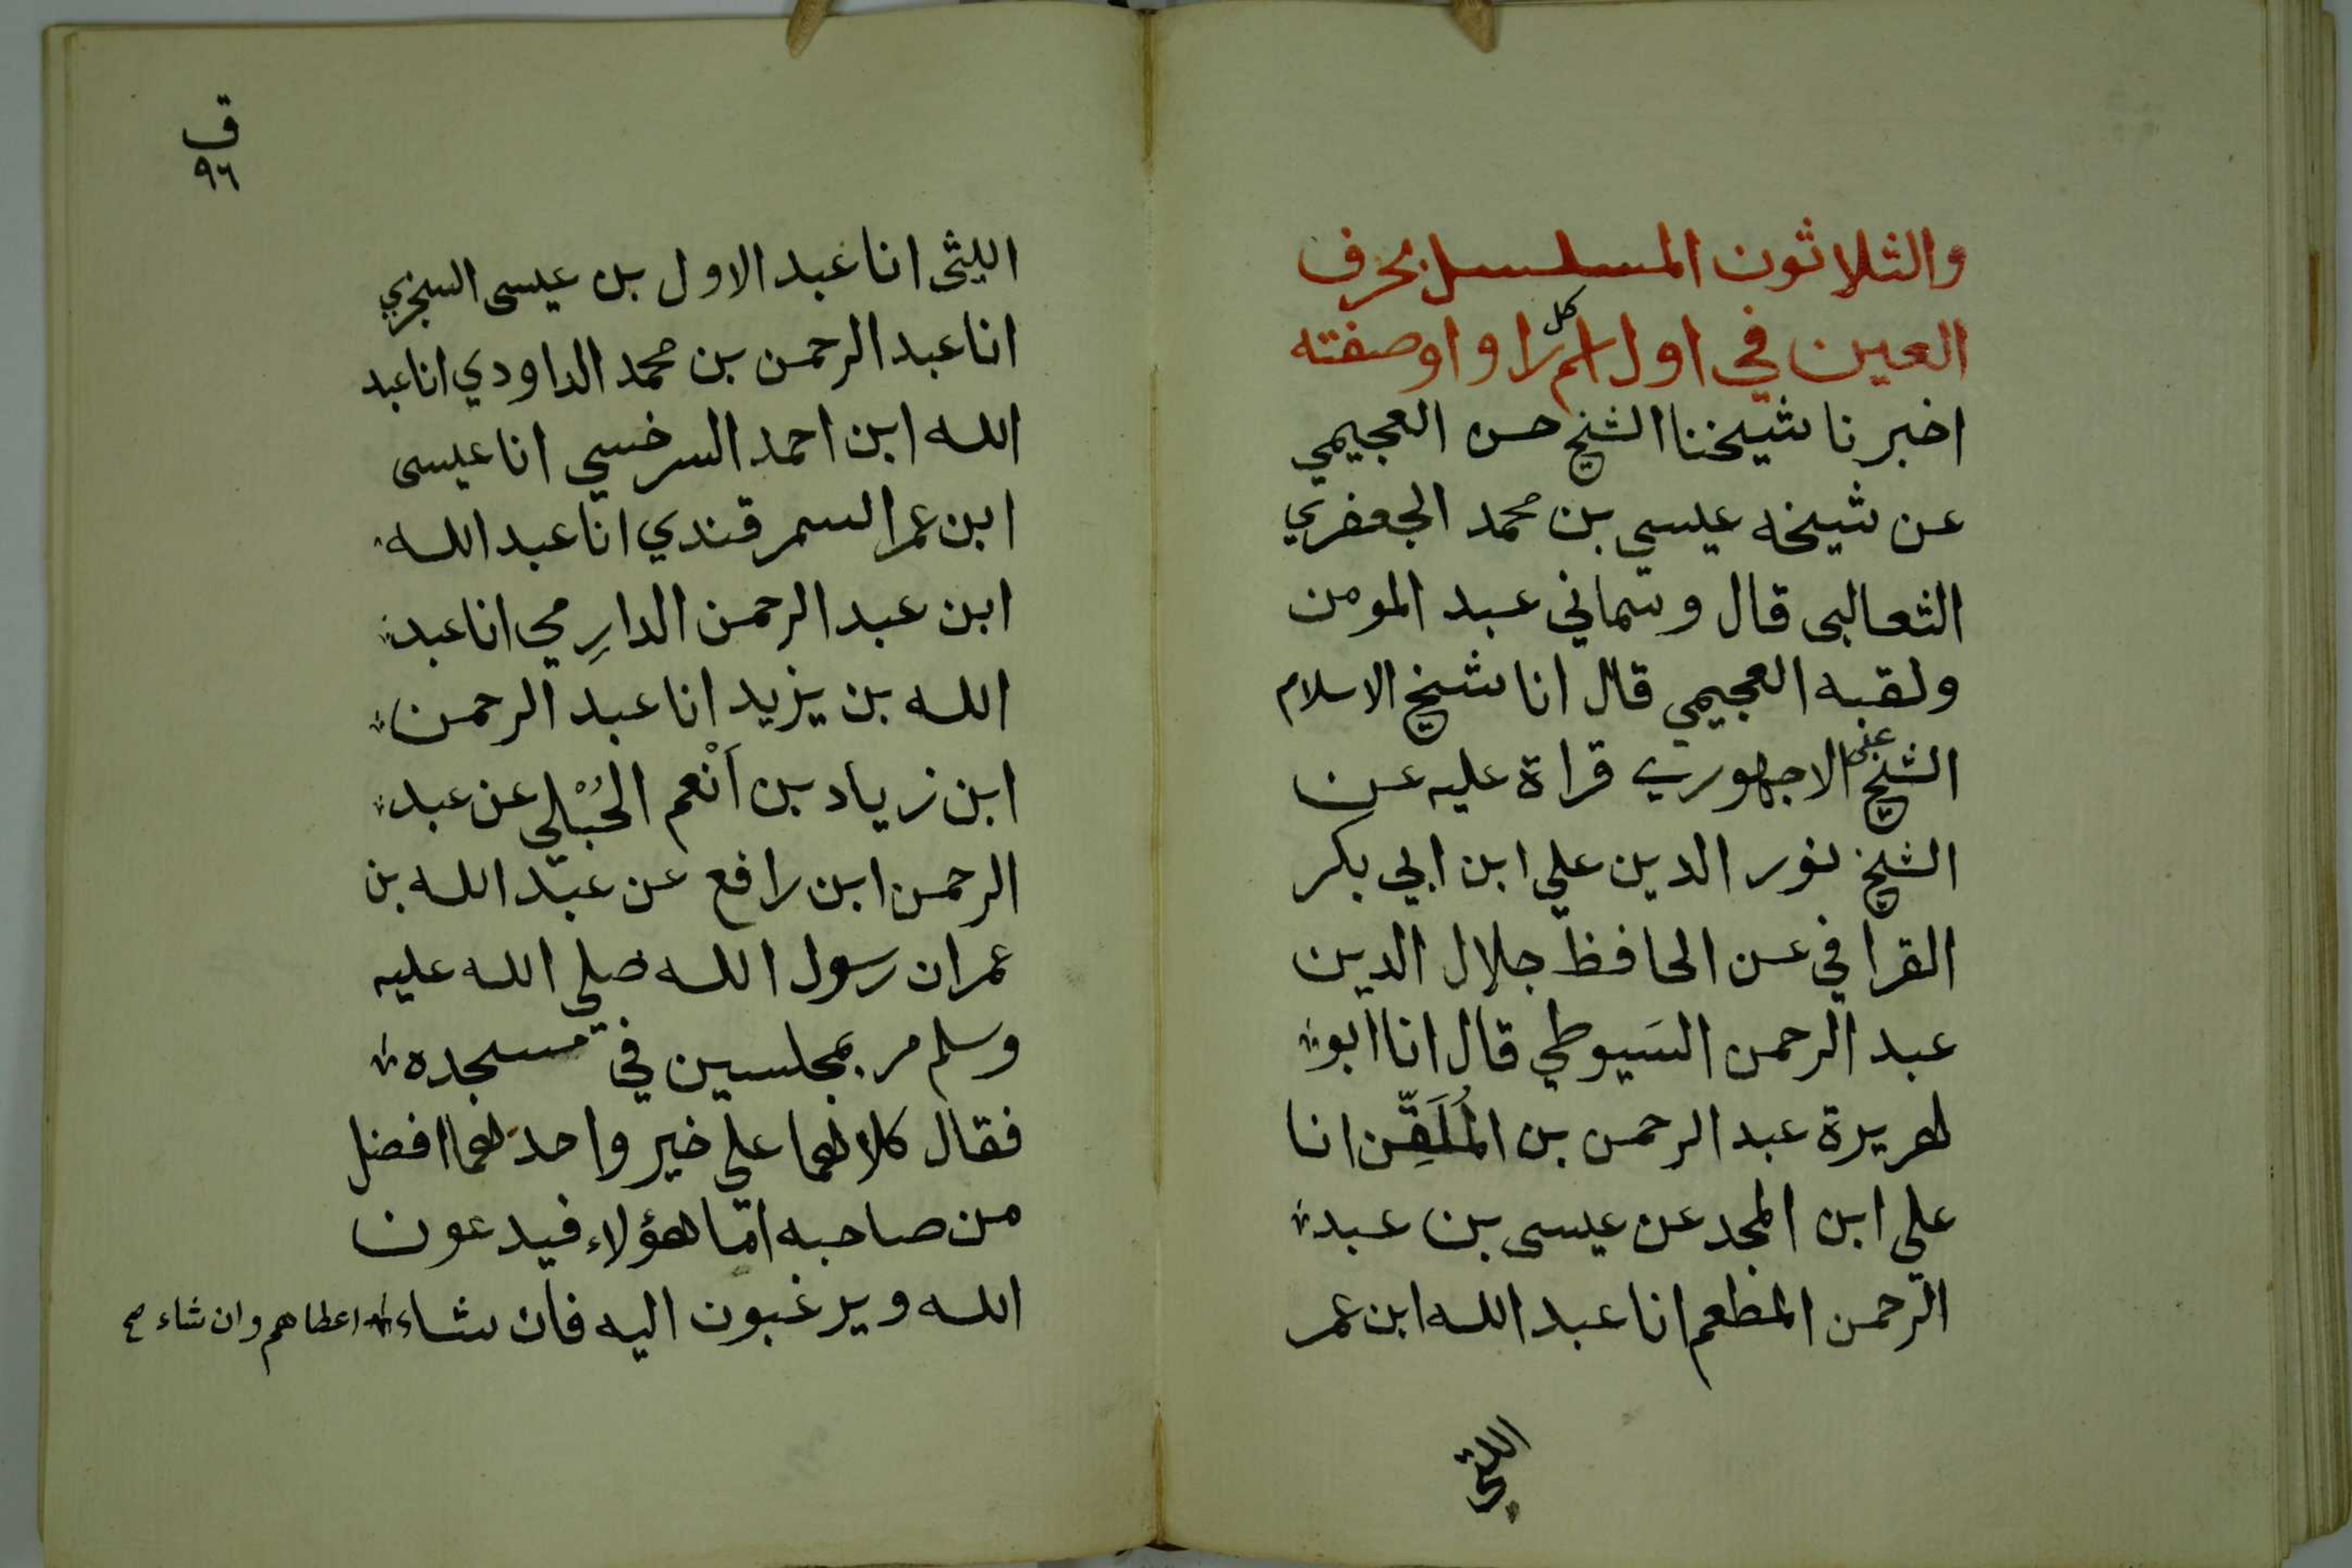 والثلاثون المسلسل بحرف
العين في اول اسم كل راو اوصفته
اخبرنا شيخنا الشيخ حسن العجيمي
عن شيخه عيسي بن محمد الجعفري
الثعالبى قال وسماني عبد المومن
ولقبه العجيمي قال انا شيخ الاسلام
الشيخ على الاجهوري قراة عليه عن
الشيخ نور الدين علي ابن ابي بكر
القرافي عن الحافظ جلال الدين
عبد الرحمن السَيوطي قال انا ابو
هريرة عبد الرحمن بن المُلَقِّن انا
علي ابن المجد عن عيسى بن عبد
الرحمن المطعم انا عبد الله ابن عمر
اللثي
ق
٩٦
الليثى انا عبد الاول بن عيسى السجزي
انا عبد الرحمن بن محمد الداودي انا عبد
الله ابن احمد السرخسي انا عيسى
ابن عمر السمرقندي انا عبد الله
ابن عبد الرحمن الدارِمي انا عبد
الله بن يزيد انا عبد الرحمن
ابن زياد بن اَنْعم الحُبْلي عن عبد
الرحمن ابن رافع عن عبد الله بن
عمر ان رسول الله صلي الله عليه
وسلم مر بمجلسين في مسجده
فقال كلاهما علي خير واحدهما افضل
من صاحبه امّا هؤلاء فيدعون
الله ويرغبون اليه فان شاء اعطاهم وان شاء صح